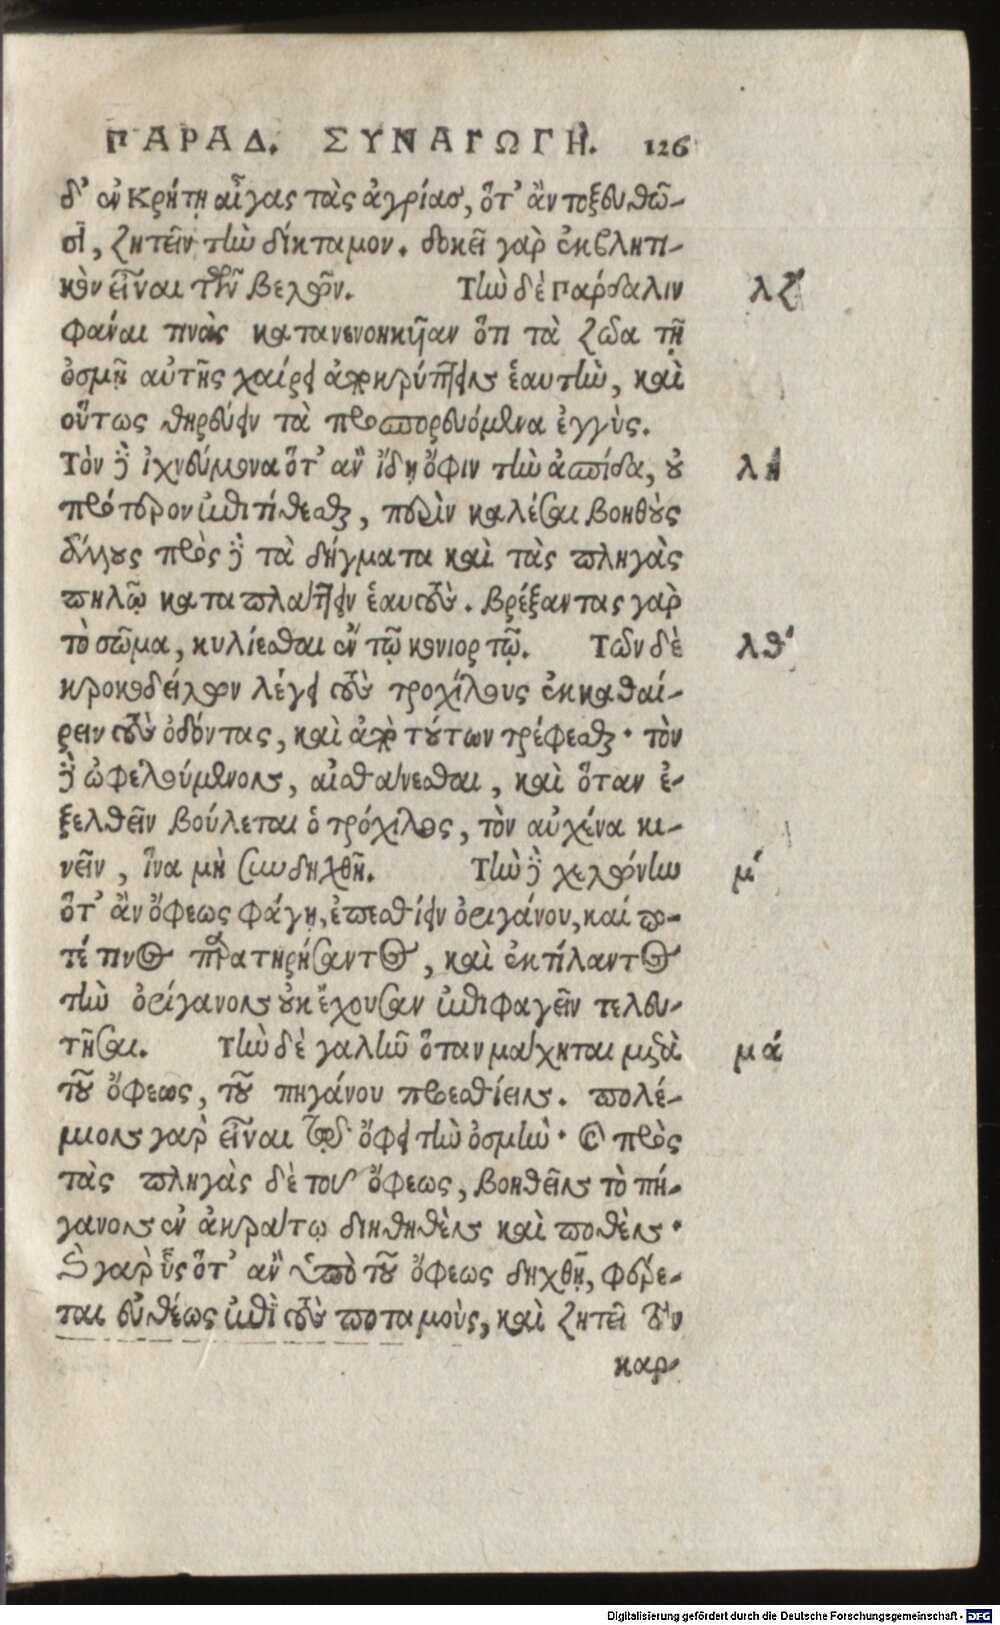 ΠΑΡΑΔ. ΣΥΝΑΓΩΓῊ. 126
δ' ἐν Κρήτῃ αἶγας τὰς ἀγρίας, ὅτ' ἂν τοξευθῶ-
σι, ζητεῖν τὴν δίκταμον. δοκεῖ γὰρ ἐκβλητι-
κὸν εἶναι τῶν βελῶν. Τὴν δὲ πάρδαλιν λζ'
φάναι τινὰς κατανενοηκέναι ὅτι τὰ ζῶα τῇ
ὀσμῇ αὐτῆς χαίρει ἀποκρύπτειν ἑαυτὴν, καὶ
οὕτως θηρεύειν τὰ προσπορευόμενα ἐγγὺς.
Τὸν δὲ ἰχνεύμονα ὅτ' ἂν ἴδῃ ὄφιν τὴν ἀσπίδα, οὐ λη
πρότερον ἐπιτίθεσθαι, πρὶν καλέσαι βοηθοὺς
ἄλλους πρὸς δὲ τὰ δήγματα καὶ τὰς πληγὰς
πηλῷ καταπλάττειν ἑαυτούς. βρέξαντας γὰρ
τὸ σῶμα, κυλίεσθαι ἐν τῷ κονιορτῷ. Τῶν δὲ λθ'
κροκοδείλων λέγει τοὺς τροχίλους ἐκκαθαί-
ρειν τοὺς ὀδόντας, καὶ ἀπὸ τούτων τρέφεσθαι· τὸν
δὲ ὠφελούμενον, αἰσθάνεσθαι, καὶ ὅταν ἐ-
ξελθεῖν βούλεται ὁ τρόχιλος, τὸν αὐχένα κι-
νεῖν, ἵνα μὴ συνδηχθῇ. Τὴν δὲ χελώνην μ'
ὅτ' ἂν ὄφεως φάγῃ, ἐπεσθίειν ὀριγάνου, καί πο-
τέ τινος παρατηρήσαντος, καὶ ἐκτίλαντος
τὴν ὀρίγανον οὐκ ἔχουσαν ἐπιφαγεῖν τελευ-
τῆσαι. Τὴν δὲ γαλῆν ὅταν μάχηται μετὰ μά
τοῦ ὄφεως, τοῦ πηγάνου προεσθίειν. πολέ-
μιον γὰρ εἶναι τῷδ' ὄφει τὴν ὀσμὴν· καὶ πρὸς
τὰς πληγὰς δὲ τοῦ ὄφεως, βοηθεῖν τὸ πή-
γανον ἐν ἀκράτῳ διηθηθὲν καὶ ποθὲν·
Ὁ γὰρ ὗς ὅτ' ἂν ὑπὸ τοῦ ὄφεως δηχθῇ, φέρε-
ται εὐθέως ἐπὶ τοὺς ποταμοὺς, καὶ ζητεῖ τὸν
καρ-
Digitalisierung gefördert durch die Deutsche Forschungsgemeinschaft - DFG